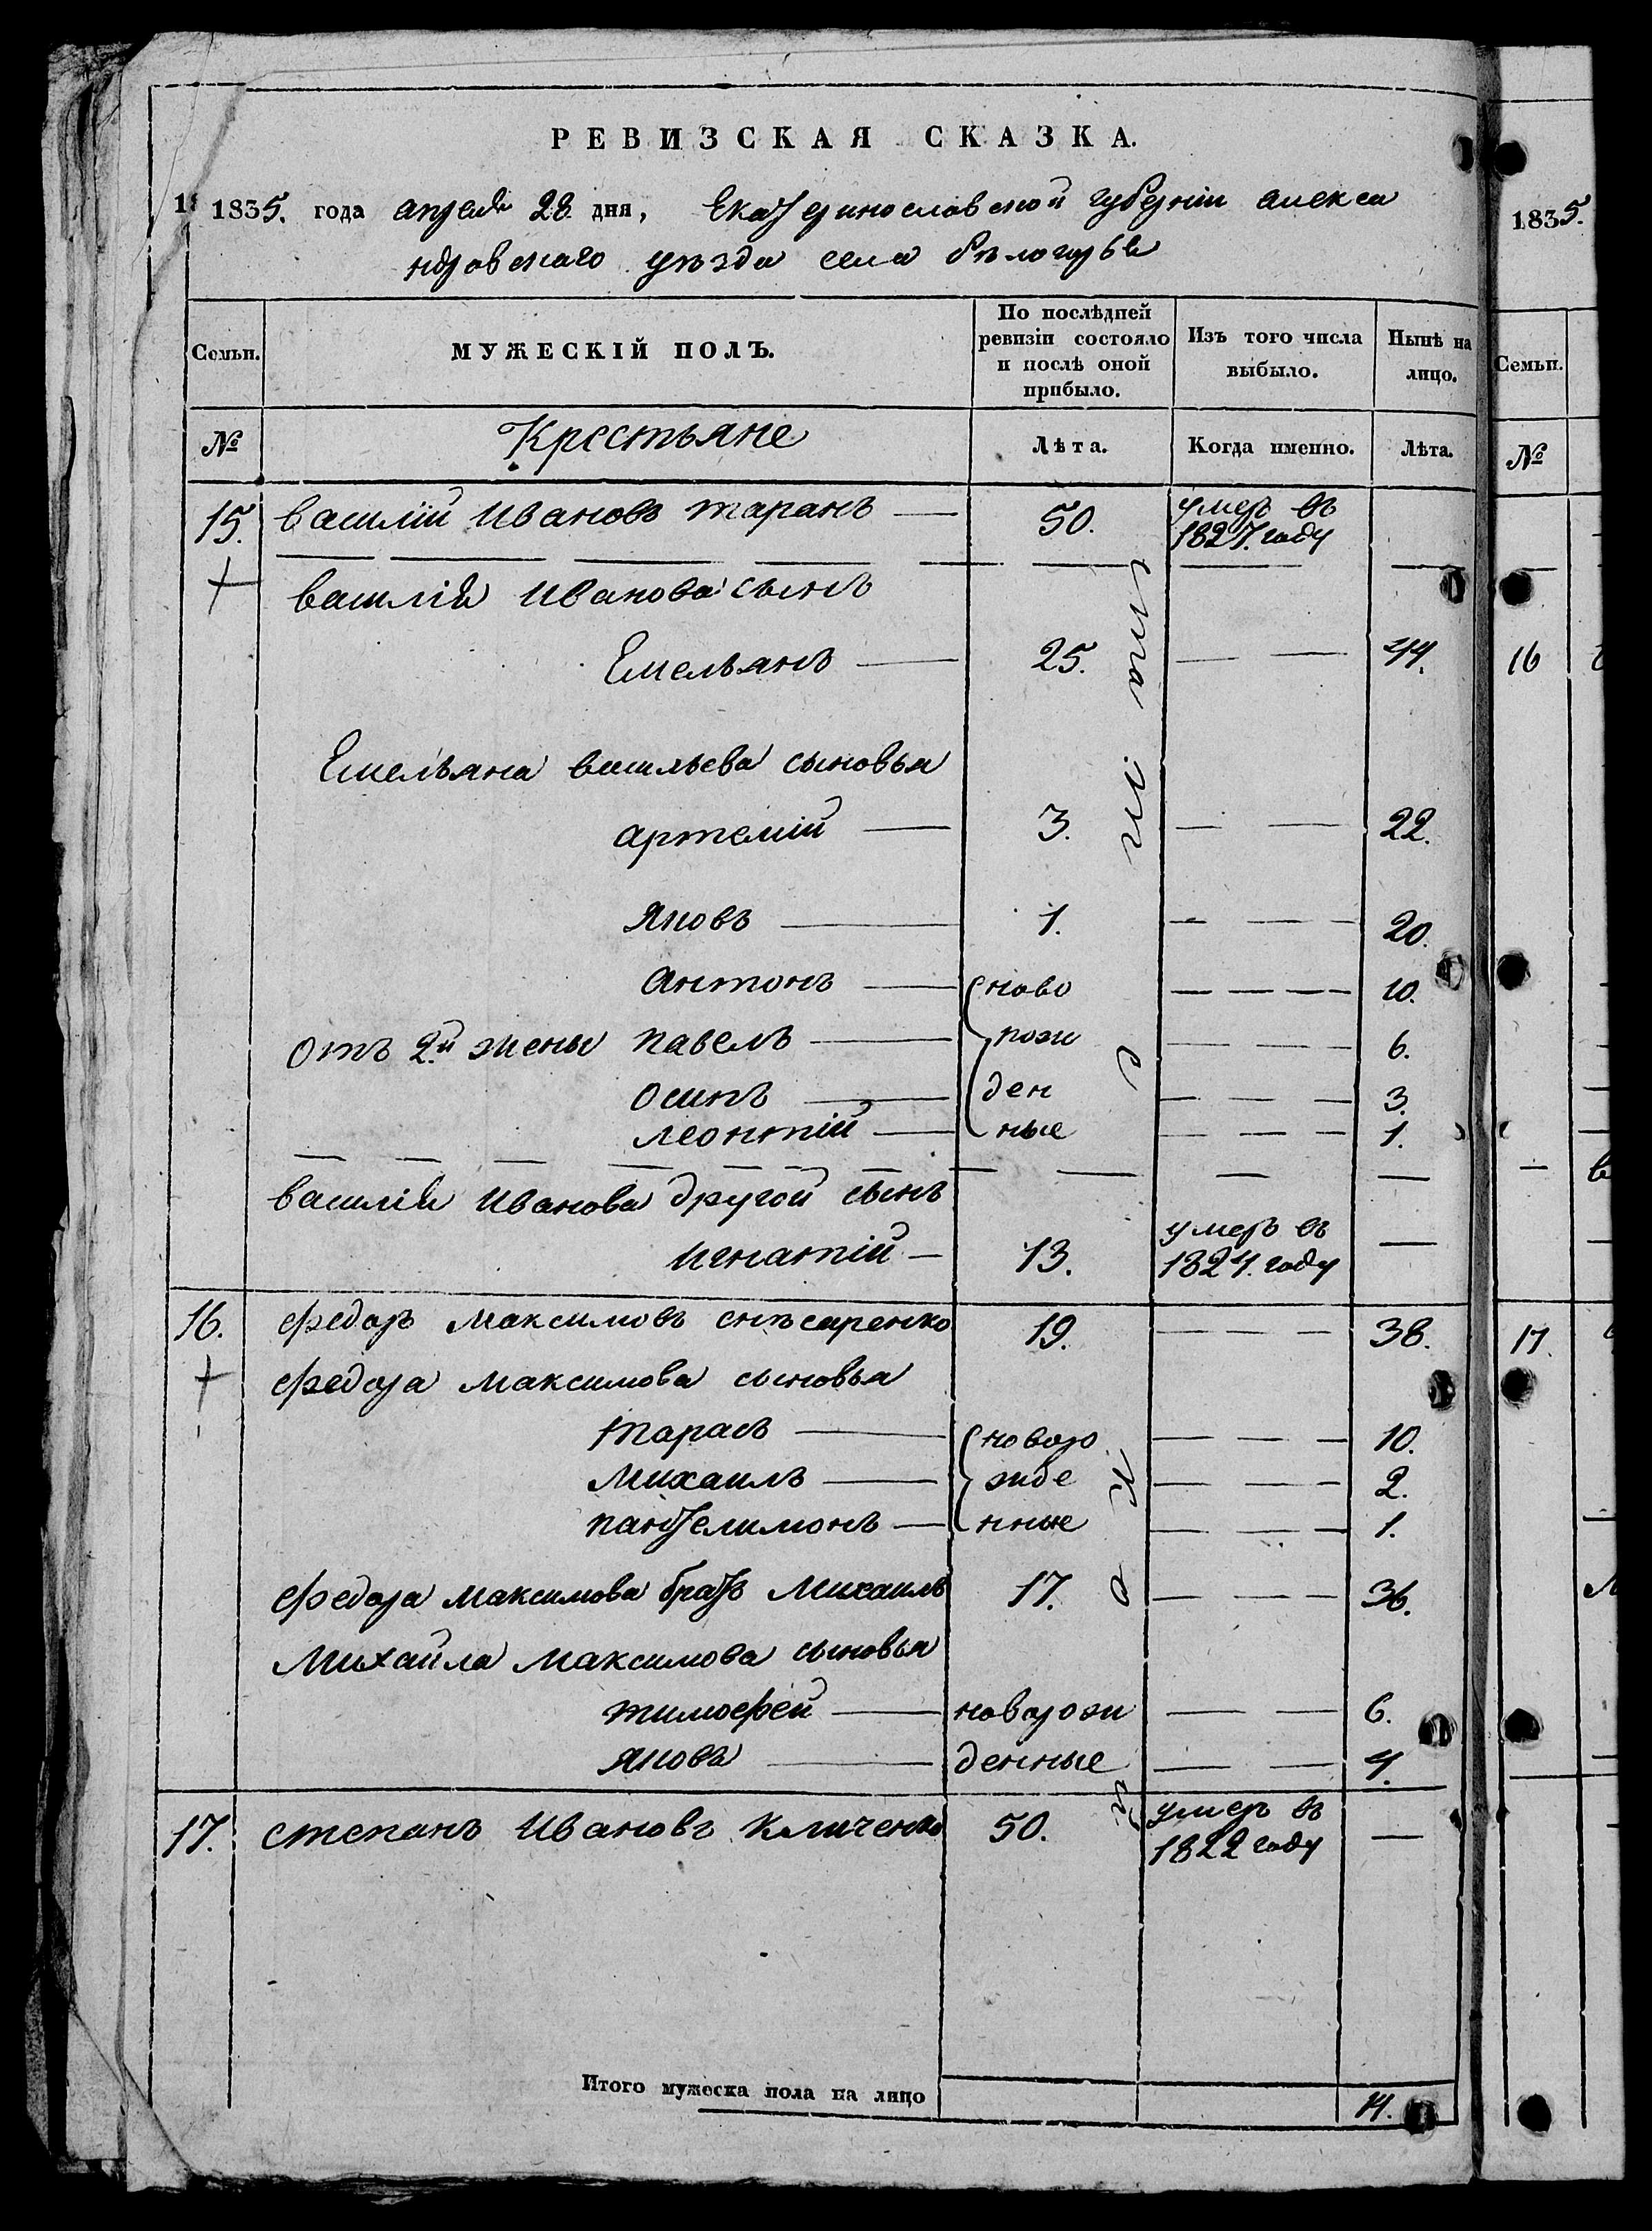 РЕВИЗСКАЯ СКАЗКА.
1835. года апреля 28 дня, Екатеринославской губерніи алекса
ндровскаго уезда села белогорья
1835.
Семьи.
МУЖЕСКІЙ ПОЛЪ.
По послѣдней ревизіи состояло и послѣ оной прибыло.
Изъ того числа выбыло.
Нынѣ на лицо.
Семьи.
№
Крестьяне
Лѣта.
Когда именно.
Лѣта.
№
15. василій Ивановъ таранъ — 50. умеръ въ 1827. году
василія Иванова сынъ
Емельянъ — 25. — — 44. 16
Емельяна васильева сыновья
артемій — 3. — — 22.
Яковъ — 1. — — — 20.
антонъ — ново — — — — 10.
отъ 2й жены павелъ — рож — — — 6.
осипъ — ден — — — 3.
леонтій — ные — — — 1.
василія Иванова другой сынъ
Игнатій — 13. умеръ въ 1824. году —
16. федоръ Максимовъ снѣсаренко 19. — — — 38. 17.
федора Максимова сыновья
тарасъ — новоро — — — 10.
Михаилъ — жде — — — 2.
пантелимонъ — нные — — — 1.
федора Максимова братъ Михаилъ 17. — — — 36.
Михаила Максимова сыновья
тимофей —новорож — — 6.
яковъ — денные — — 4.
17. степанъ Ивановъ Кличенко 50. умеръ въ 1822 году —
Итого мужеска пола на лицо 14.